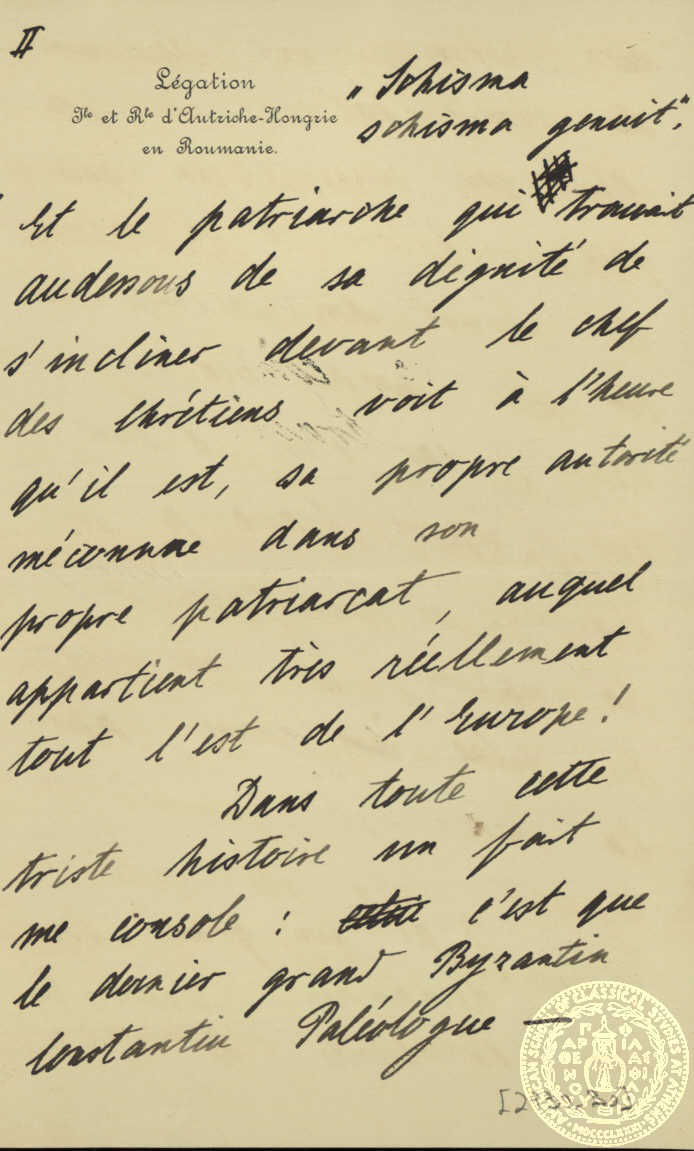 II
Légation
Ile et Rle d'Autriche-Hongrie
en Roumanie.
"Schisma
schisma genuit".
Et le patriarche qui trouvait
audessous de sa dignité de
s'incliner devant le chef
des chrétiens voit à l'heure
qu'il est, sa propre autorité
méconnue dans son
propre patriarcat, auquel
appartient très réellement
tout l'est de l'Europe!
Dans toute cette
triste histoire un fait
me console: c'est que
le dernier grand Byzantin
Constantin Paléologue —
AMERICAN SCHOOL OF CLASSICAL STUDIES AT ATHENS
MDCCCLXXXI